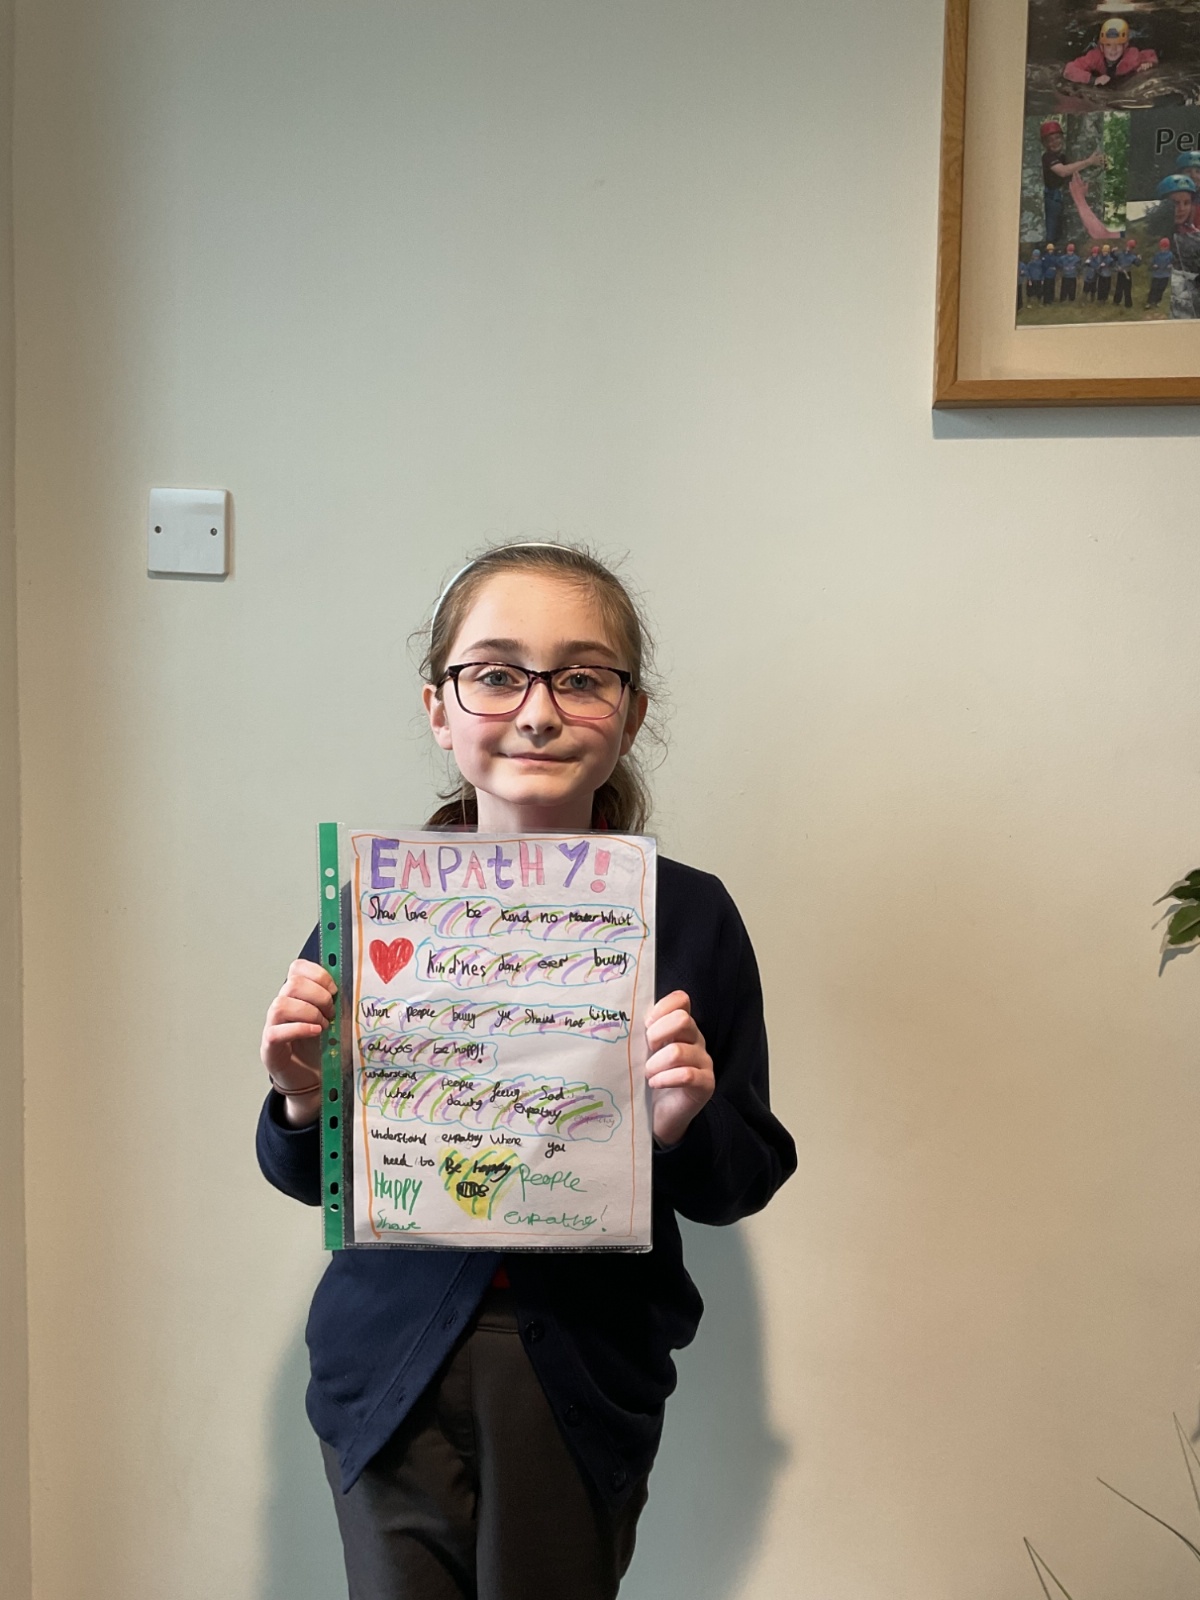 Per
EMPAtHY!
Show love be kind no mater What
Kindnes dont ever buuy
When people buuy you Should not listen
always be happy!
understand people feeling Sad
When empathy
understand empathy where you
need to Be happy
Happy people
Share empathy!